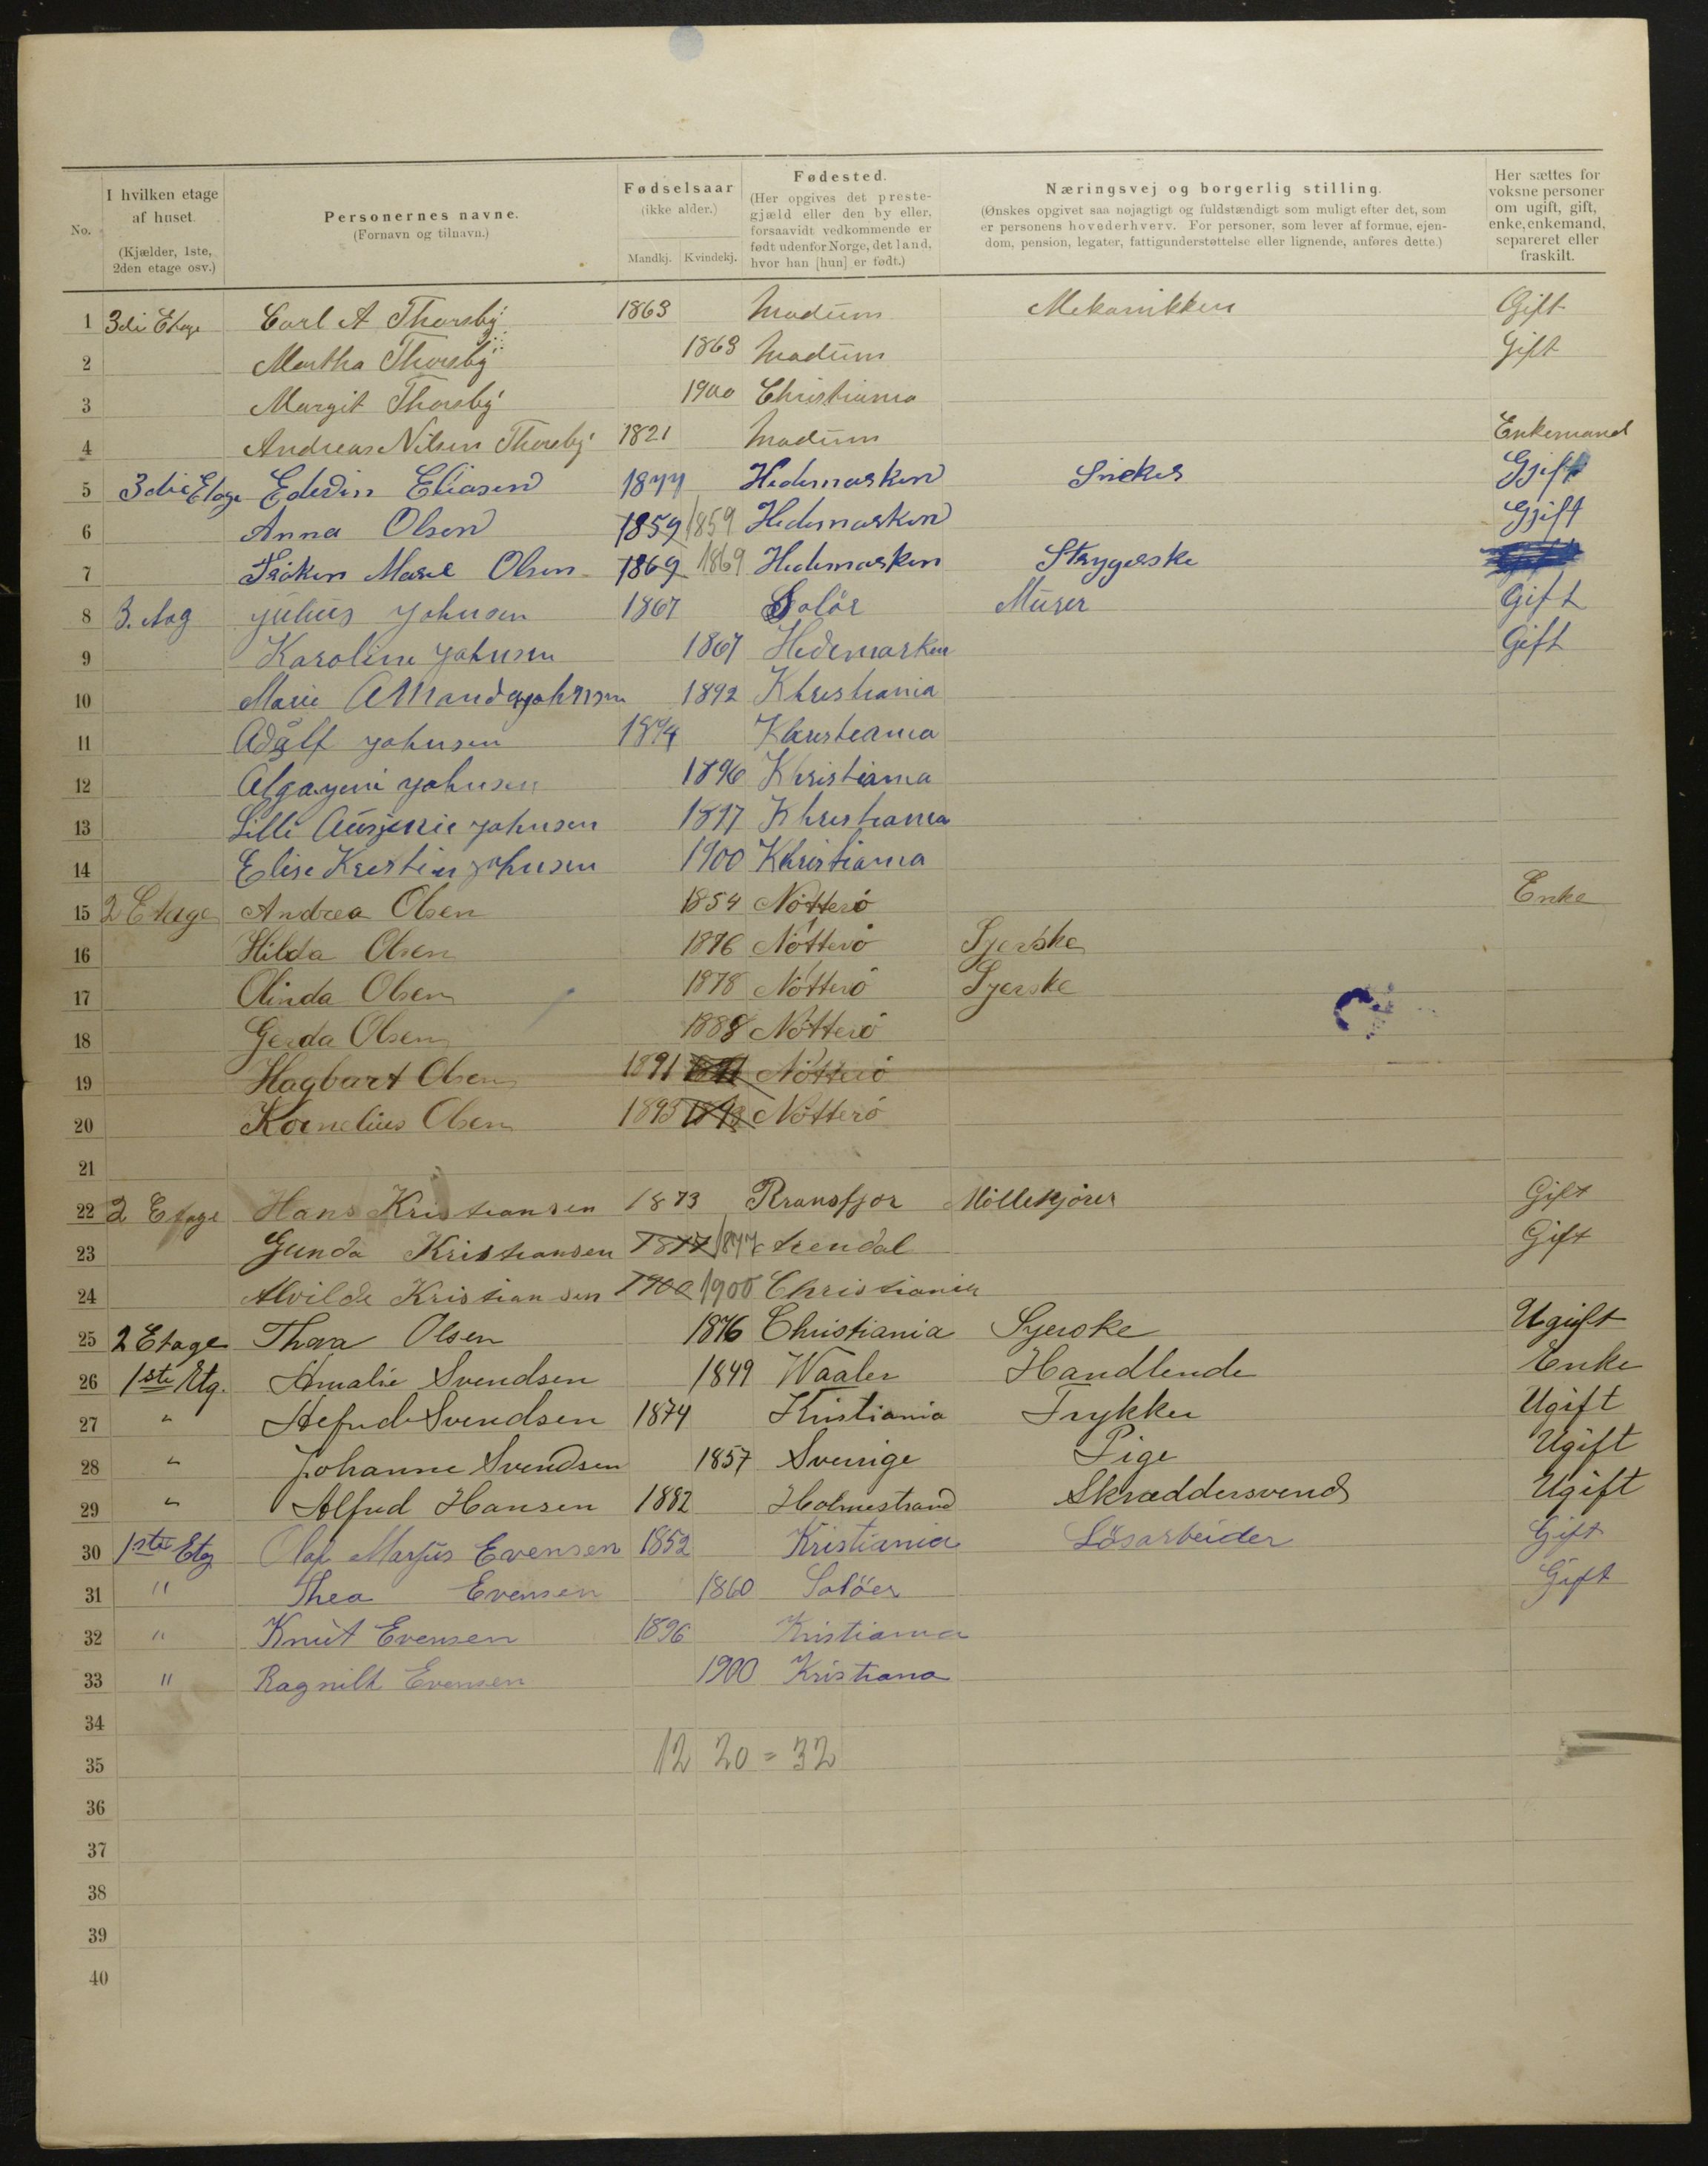 No.
I hvilken etage af huset.
(Kjælder, 1ste, 2den etage osv.)
Personernes navne.
(Fornavn og tilnavn.)
Fødselsaar
(ikke alder.)
Mandkj. Kvindekj.
Fødested.
(Her opgives det prestegjæld eller den by eller, forsaavidt vedkommende er født udenfor Norge, det land, hvor han [hun] er født.)
Næringsvej og borgerlig stilling.
(Ønskes opgivet saa nøjagtigt og fuldstændigt som muligt efter det, som er personens hovederhverv. For personer, som lever af formue, ejendom, pension, legater, fattigunderstøttelse eller lignende, anføres dette.)
Her sættes for voksne personer om ugift, gift, enke, enkemand, separeret eller fraskilt.
1 3di Etage Carl A Thorsby 1863 Modum Mekanikken Gift
2 Martha Thorsby 1863 Modum Gift
3 Margit Thorsby 1900 Christiania
4 Andreas Nilsen Thorsby 1821 Modum Enkemand
5 3die Etage Edvin Eliasen 1877 Hedemarken Sneker Gjift
6 Anna Olsen 1859 1859 Hedemarken Gjift
7 Fröken Marie Olsen 1869 1869 Hedemarken Strygerske
8 3. Aag Julius Johnsen 1867 Solör Murer Gift
9 Karoline Johnsen 1867 Hedemarken Gift
10 Marie Amanda Johnsen 1892 Khristiania
11 Adålf Johnsen 1894 Khristiania
12 Johnsen 1896 Khristiania
13 Lilli Johnsen 1897 Khristiania
14 Elise Kristine Johnsen 1900 Khristiania
15 2 Etage Andrea Olsen 1854 Nötterö Enke
16 Hilda Olsen 1876 Nötterö Syerske
17 Olinda Olsen 1878 Nötterö Syerske
18 Gerda Olsen 1888 Nötterö
19 Hagbart Olsen 1891 1891 Nötterö
20 Kornelius Olsen 1893 1893 Nötterö
21
22 2 Etage Hans Kristiansen 1873 Rransfjor Möllekjörer Gift
23 Gunda Kristiansen 1877 1877 Arendal Gift
24 Alvilde Kristiansen 1900 1900 Christiania
25 2 Etage Thora Olsen 1876 Christiania Syerske Ugift
26 1ste Etg. Amalie Svendsen 1849 Waaler Handlende Enke
27 " Alfred Svendsen 1874 Kristiania Trykker Ugift
28 " Johanne Svendsen 1857 Sverrige Pige Ugift
29 " Alfred Hansen 1882 Holmestrand Skræddersvend Ugift
30 1ste Etg Olaf Marjus Evensen 1852 Kristiania Lösarbeider Gift
31 " Thea Evensen 1860 Solöer Gift
32 " Knut Evensen 1896 Kristiania
33 " Ragnilh Evensen 1900 Kristiana
34
35 12 20 = 32
36
37
38
39
40